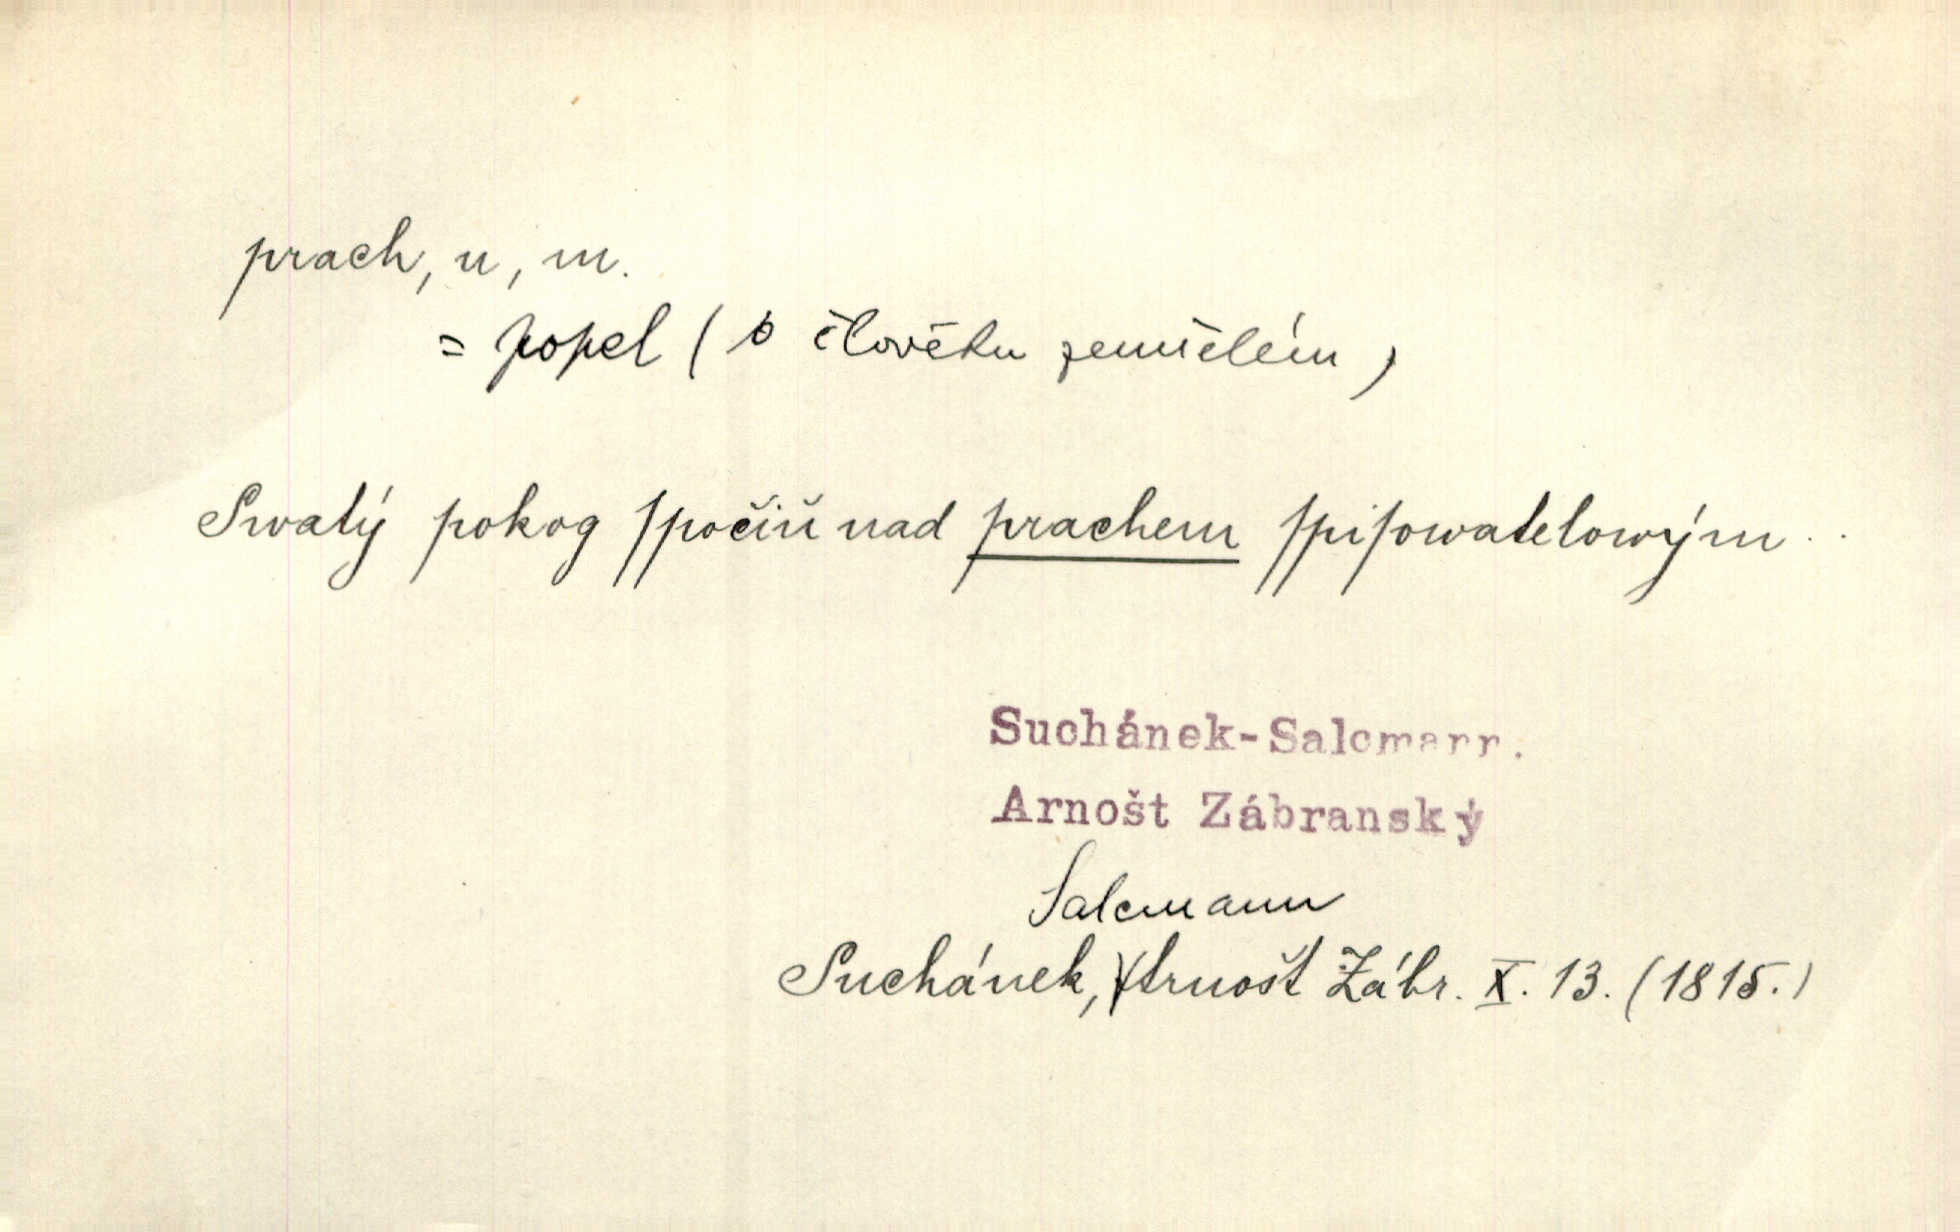 prach, u, m.
= popel (o člověku zemřelém)
Swatý pokog ſpočiň nad prachem ſpiſowatelowým..
Suchánek-Salcmann.
Arnošt Zábranský
Salcmann
Suchánek, Arnošt Zábr. X. 13. (1815.)